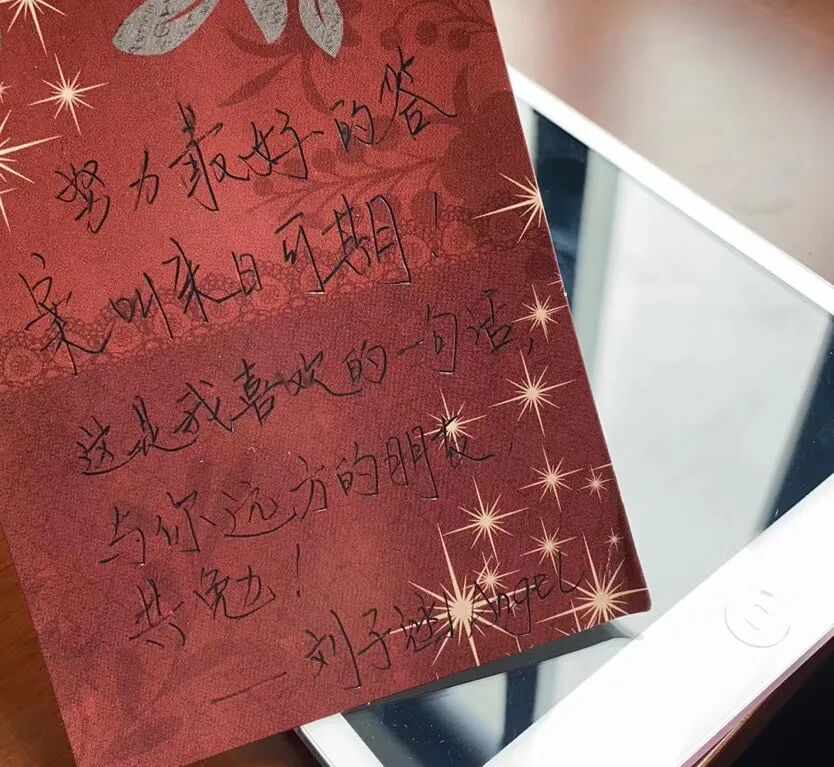 努力最好的答
案叫来日可期！
这是我喜欢的一句话，
与你远方的朋友，
共勉！
——刘子涵Angel